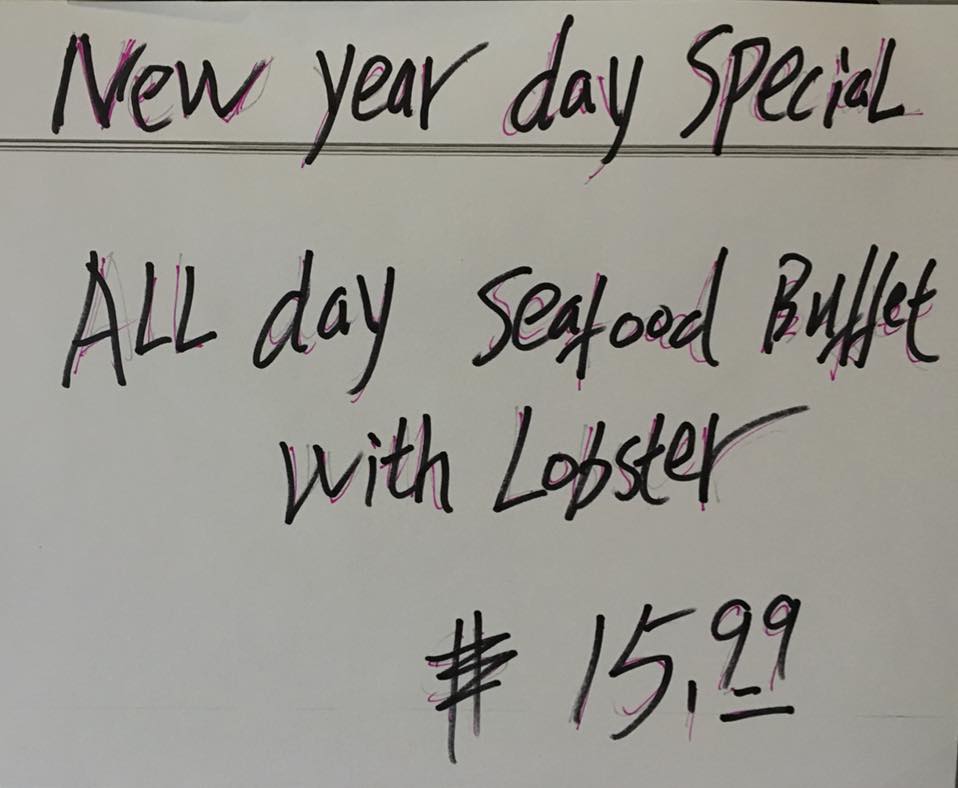 New year day Special
ALL day Seafood Buffet
with Lobster
$ 15.99